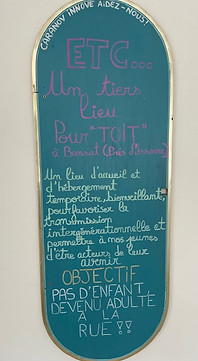 CARANOV INNOVE AIDEZ-NOUS!
ETC...
Un tiers
lieu
Pour "TOIT"
à Bansat (Près d'Issoire)
Un lieu d'accueil et
d'hébergement
temporaire, bienveillant,
pour favoriser la
transmission
intergénérationnelle et
permettre à nos jeunes
d'être acteurs de leur
avenir
OBJECTIF
PAS D'ENFANT
DEVENU ADULTE
À LA
RUE !!